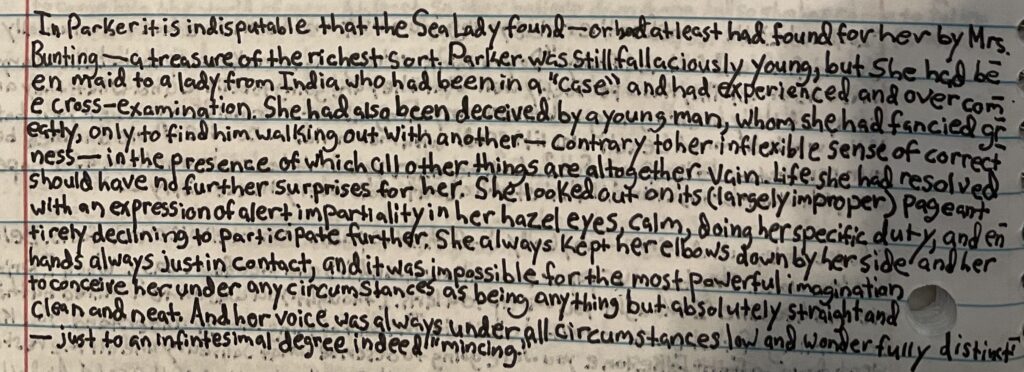 In Parker it is indisputable that the Sea Lady found—or had at least had found for her by Mrs.
Bunting—a treasure of the richest sort. Parker was still fallaciously young, but she had be-
en maid to a lady from India who had been in a "case" and had experienced and overcom-
e cross-examination. She had also been deceived by a young man, whom she had fancied gr-
eatly, only to find him walking out with another—contrary to her inflexible sense of correct-
ness—in the presence of which all other things are altogether vain. Life she had resolved
should have no further surprises for her. She looked out on its (largely improper) pageant
with an expression of alert impartiality in her hazel eyes, calm, doing her specific duty, and en-
tirely declining to participate further. She always kept her elbows down by her side and her
hands always just in contact, and it was impossible for the most powerful imagination
to conceive her under any circumstances as being anything but absolutely straight and
clean and neat. And her voice was always under all circumstances low and wonderfully distinct
—just to an infintesimal degree indeed "mincing."